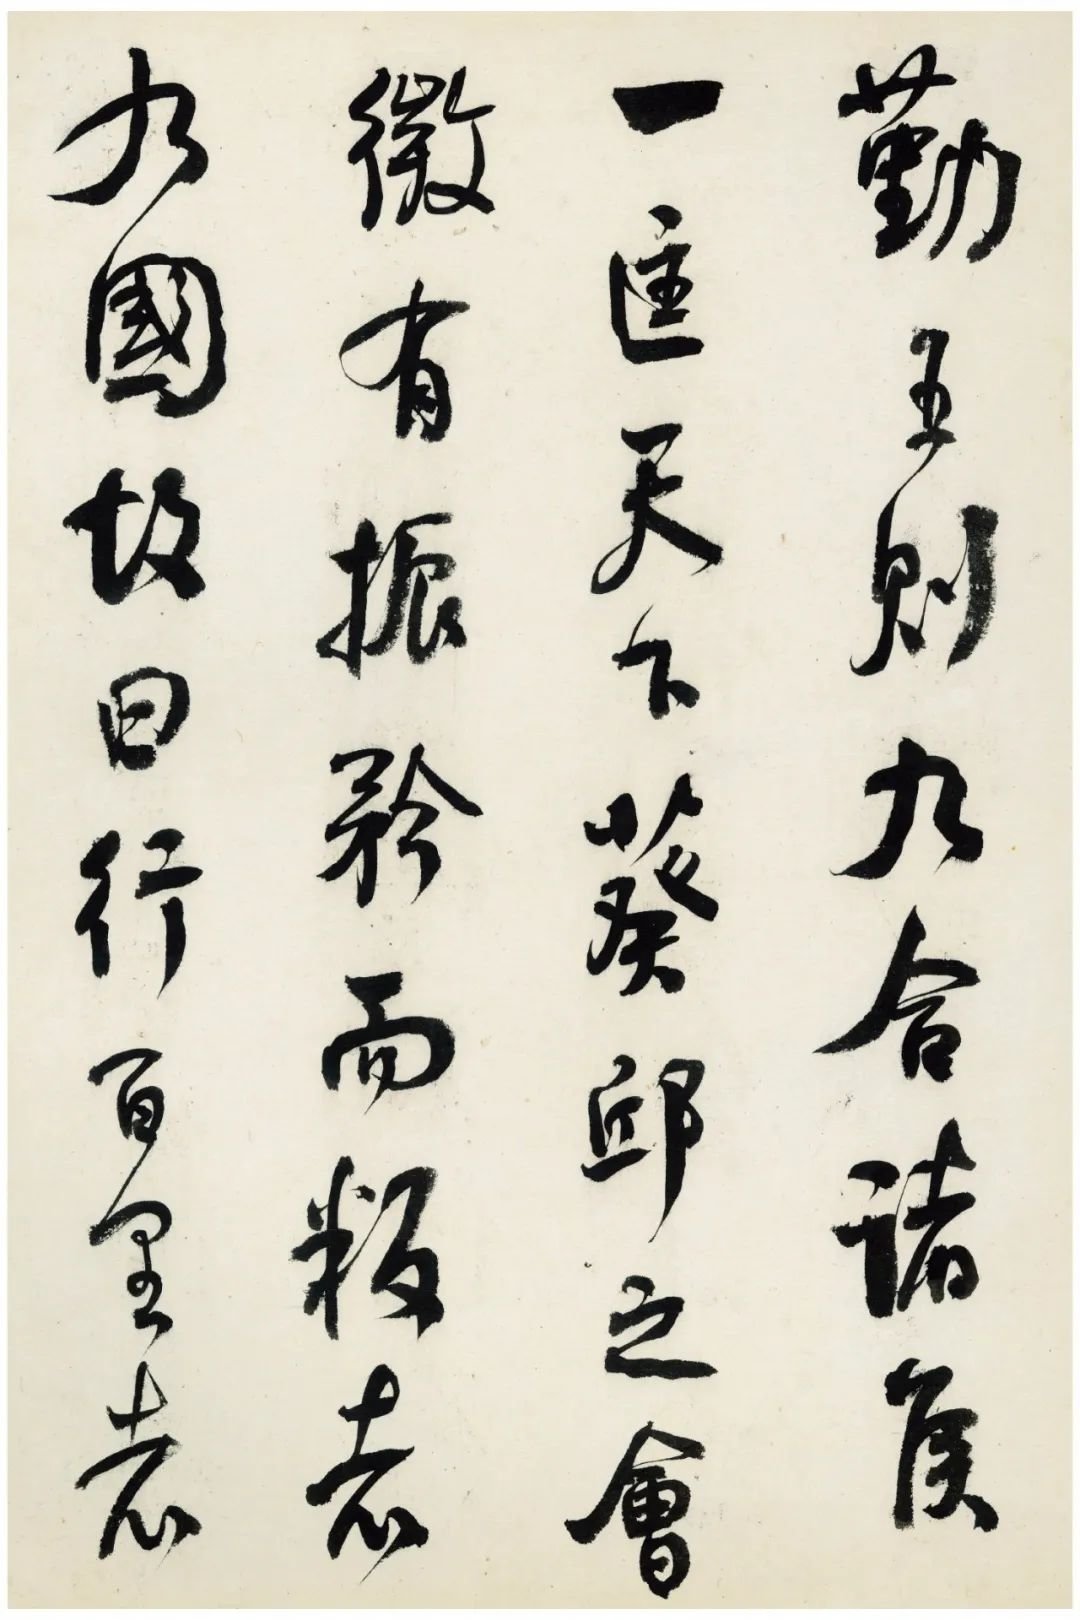 勤王則九合諸侯
一匡天下葵邱之會
微有振矜而叛者
九國故曰行百里者